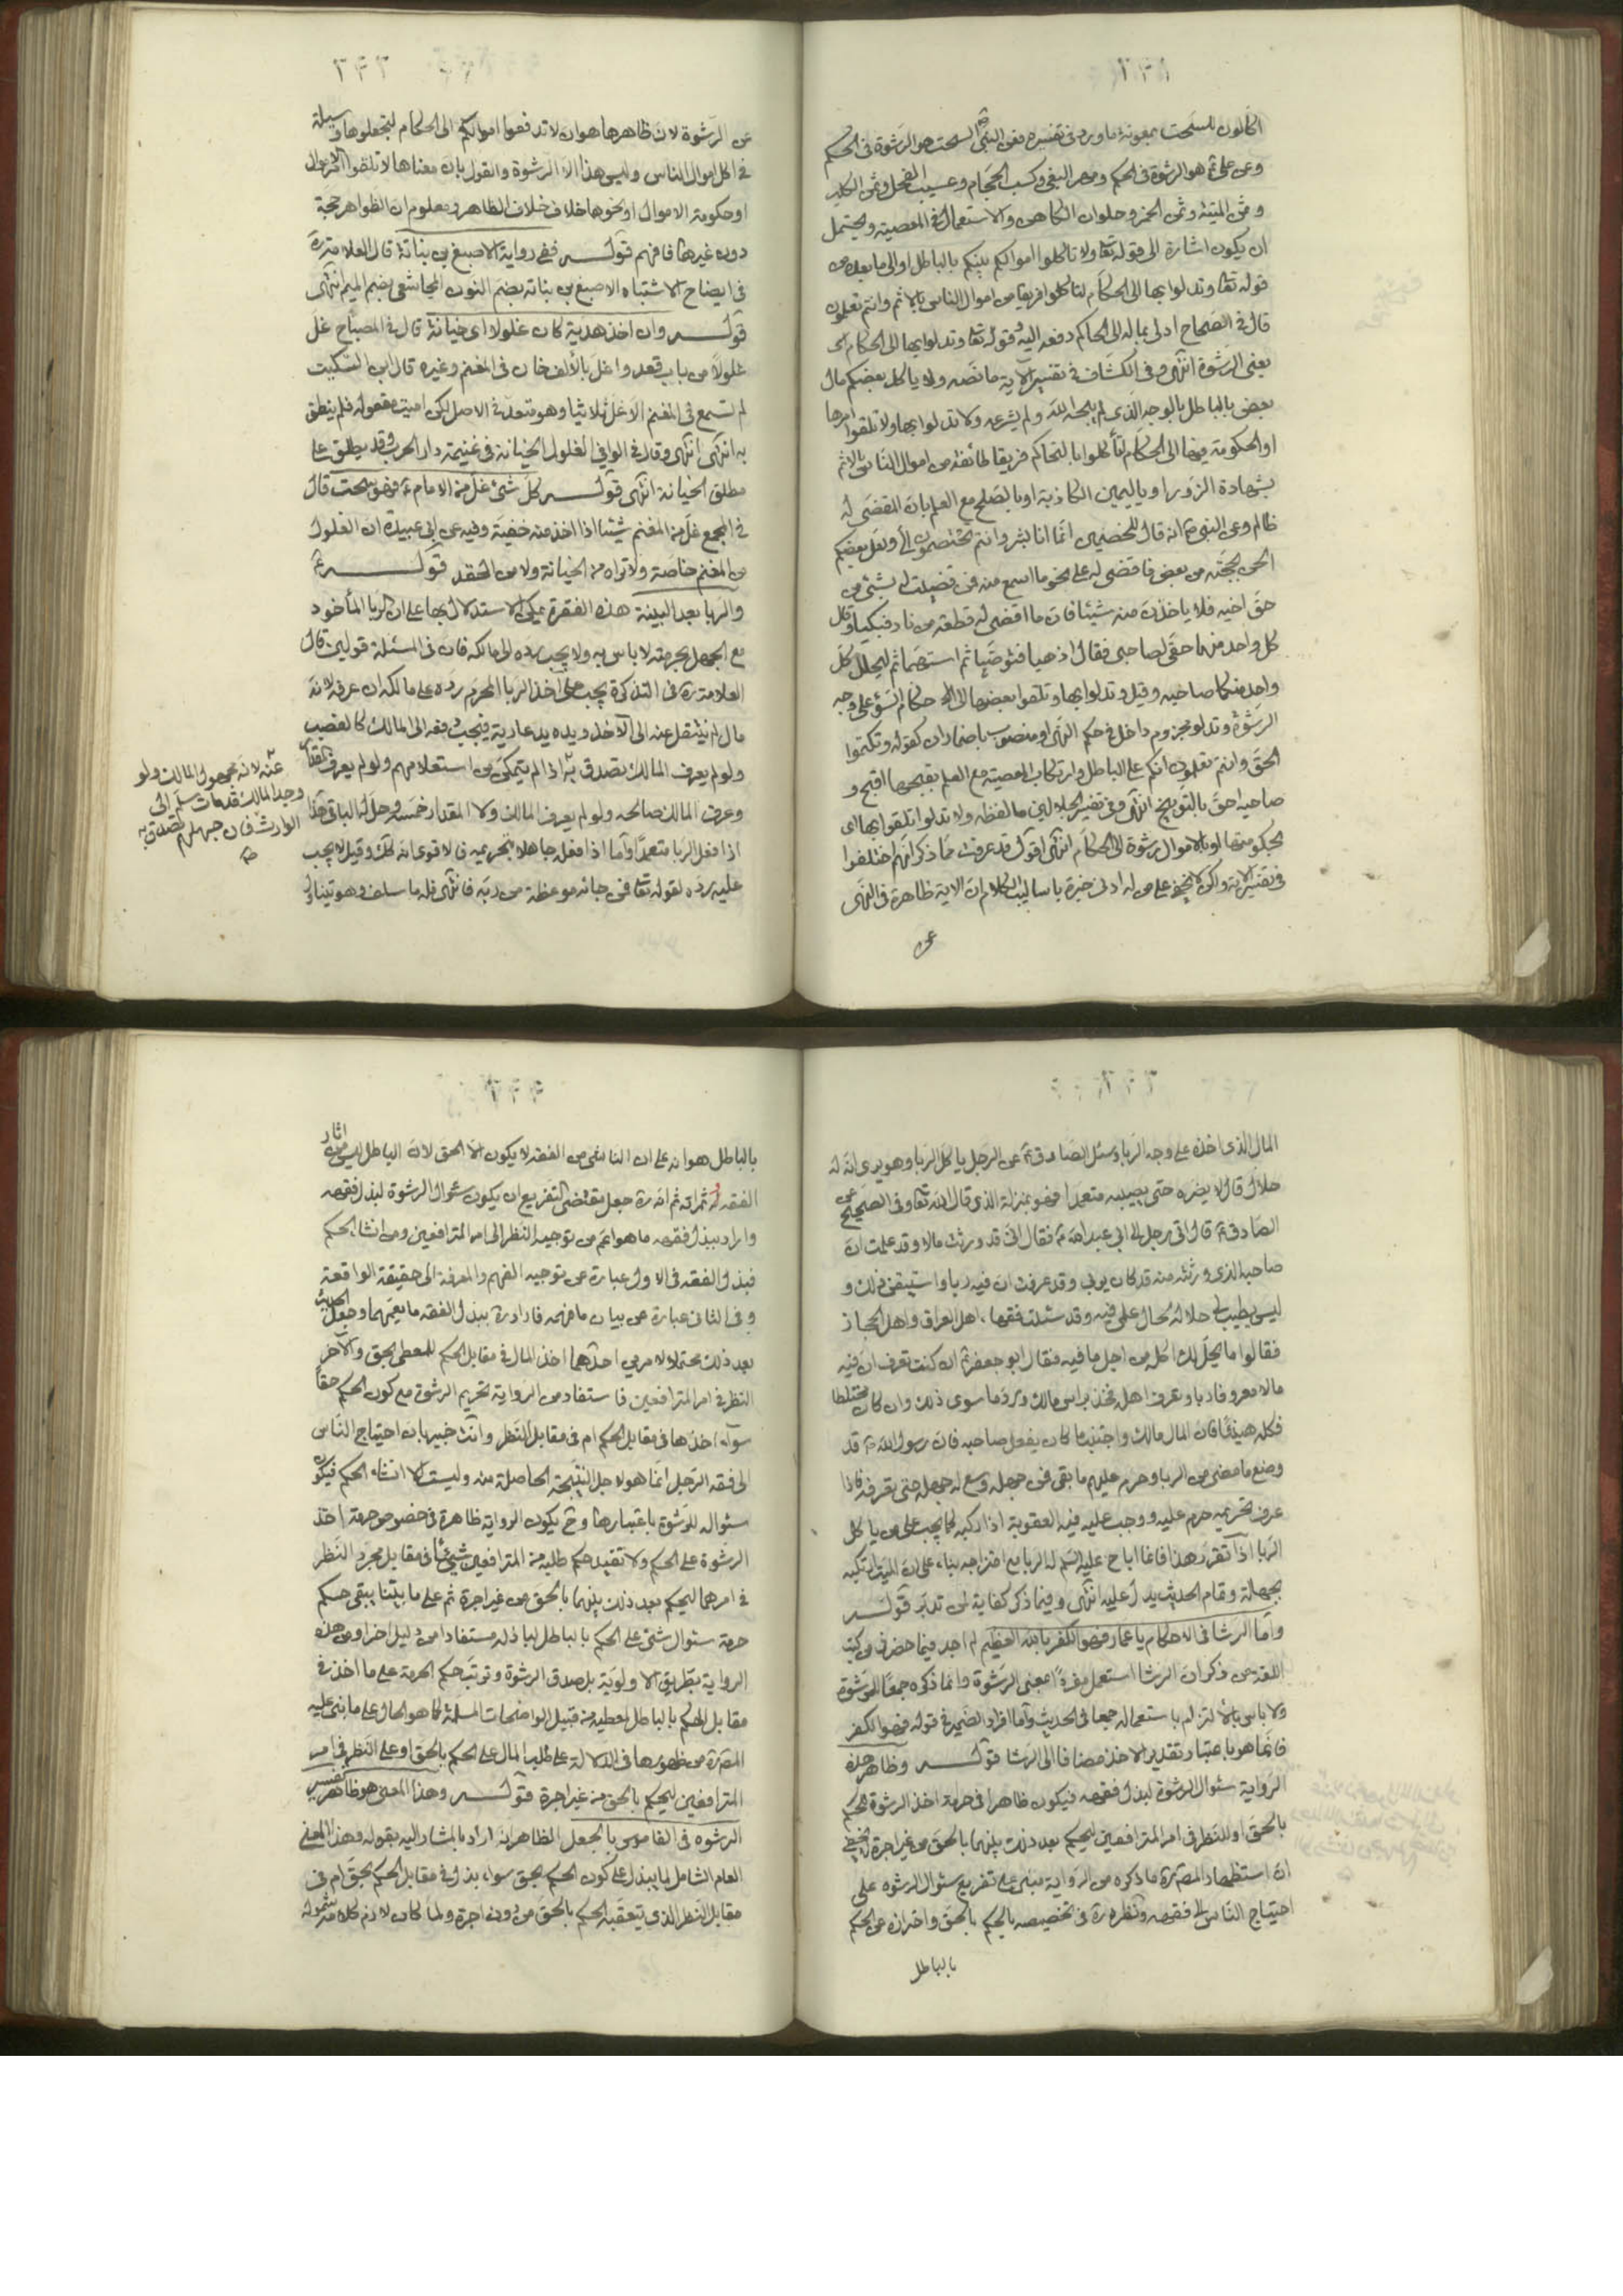 ٢٣١
اكالون للسحت بمعونة ما ورد فى تفسيره فعن النبى ص السحت هو الرشوة فى الحكم
وعن على ع هو الرشوة فى الحكم ومهر البغى وكسب الحجام وعسيب الفحل وثمن الكلب
وثمن الميتة وثمن الخمر وحلوان الكاهن والاستعمال فى المعصية ويحتمل
ان يكون اشارة الى قوله تعا ولا تاكلوا اموالكم بينكم بالباطل او الى ما بعده من
قوله تعا وتدلوا بها الى الحكام لتاكلوا فريقا من اموال الناس بالاثم وانتم تعلمون
قال فى الصحاح ادلى بماله الى الحاكم دفعه اليه وقوله تعا وتدلوا بها الى الحكام
يعنى الرشوة انتهى وفى الكشاف فى تفسير الآية ما نصه ولا ياكل بعضكم مال
بعض بالباطل بالوجه الذى لم يبحه الله ولم يشرعه ولا تدلوا بها ولا تلقوا امرها
او الحكومة فيها الى الحكام لتأكلوا بالتحاكم فريقا طائفة من اموال الناس بالاثم
بشهادة الزور او باليمين الكاذبة او بالصلح مع العلم بان المقضى له
ظالم وعن النبى ص انه قال للخصمين انما انا بشر وانتم تختصمون الى ولعل بعضكم
الحن بحجته من بعض فاقضى له على نحو ما اسمع منه فمن قضيت له بشئ من
حق اخيه فلا ياخذن منه شيئا فان ما اقضى له قطعة من نار فبكيا وقال
كل واحد منهما حقى لصاحبى فقال اذهبا فتوخيا ثم استهما ثم ليحلل كل
واحد منكما صاحبه وقيل وتدلوا بها وتلقوا بعضها الى حكام السوء على وجه
الرشوة وتدلوا مجزوم داخل فى حكم النهى او منصوب باضمار ان كقوله وتكتموا
الحق وانتم تعلمون انكم على الباطل وارتكاب المعصية مع العلم بقبحها اقبح و
صاحبه احق بالتوبيخ انتهى وفى تفسير الجلالين ما لفظه ولا تدلوا تلقوا بها اى
بحكومتها او بالاموال رشوة الى الحكام انتهى اقول قد عرفت مما ذكر انهم اختلفوا
فى تفسير الآية ولكن لا يخفى على من له ادنى خبرة باساليب الكلام ان الاية ظاهرة فى النهى
عن
٢٣٢
عن الرشوة لان ظاهرها هو ان لا تدفعوا اموالكم الى الحكام لتجعلوها وسيلة
فى اكل اموال الناس وليس هذا الا الرشوة والقول بان معناها لا تلقوا امر الاموال
او حكومة الاموال او نحوها خلاف خلاف الظاهر ومعلوم ان الظواهر حجة
دون غيرها فافهم قوله ففى رواية الاصبغ بن نباتة قال العلامة ره
فى ايضاح الاشتباه الاصبغ بن نباتة بضم النون المجاشعى بضم الميم انتهى
قوله وان اخذ هدية كان غلولا اى خيانة قال فى المصباح غل
غلولا من باب قعد واغل بالألف خان فى المغنم وغيره قال ابن السكيت
لم تسمع فى المغنم الا غل ثلاثيا وهو متعد فى الاصل لكن اميت مفعوله فلم ينطق
به انتهى انتهى وقال فى الوافى الغلول الخيانة فى غنيمة دار الحرب وقد يطلق على
مطلق الخيانة انتهى قوله كل شئ غل من الامام ع فهو سحت قال
فى المجمع غل من المغنم شيئا اذا اخذ منه خفية وفيه عن ابى عبيدة ان الغلول
من المغنم خاصة ولا تراه من الخيانة ولا من الحقد قوله ع
والربا بعد البينة هذه الفقرة يمكن الاستدلال بها على ان الربا المأخوذ
مع الجهل بحرمته لا باس به ولا يجب رده الى مالكه فان فى المسئلة قولين قال
العلامة ره فى التذكرة يجب على اخذ الربا المحرم رده على مالكه ان عرفه لانه
مال لم ينتقل عنه الى الآخذ ويده يد عادية فيجب دفعه الى المالك كالغصب
ولو لم يعرف المالك تصدق به اذا لم يتمكن من استعلامهم ولو لم يعرف المقدار
وعرف المالك صالحه ولو لم يعرف المالك ولا المقدار خمسه وحل له الباقى هذا
اذا فعل الربا متعمدا واما اذا فعله جاهلا بتحريمه فالاقوى انه كذلك وقيل لا يجب
عليه رده لقوله تعا فمن جائه موعظة من ربه فانتهى فله ما سلف وهو يتناول
عنه لانه مجهول المالك ولو
وجد المالك قد مات سلم الى
الوارث فان جهلهم تصدق به
صح
٢٣٣
المال الذى اخذه على وجه الربا وسئل الصادق ع عن الرجل ياكل الربا وهو يرى انه له
حلال قال لا يضره حتى يصيبه متعمدا فهو بمنزلة الذى قال الله تعا وفى الصحيح عن
الصادق ع قال اتى رجل الى ابى عبدالله ع فقال انى قد ورثت مالا وقد علمت ان
صاحبه الذى ورثته منه قد كان يربى وقد عرفت ان فيه ربا واستيقن ذلك و
ليس يطيب لى حلاله لحال علمى فيه وقد سئلت فقهاء اهل العراق واهل الحجاز
فقالوا ما يحل لك اكله من اجل ما فيه فقال ابو جعفر ع ان كنت تعرف ان فيه
مالا معروفا ربا وتعرف اهله فخذ براس مالك ورد ما سوى ذلك وان كان مختلطا
فكله هنيئا فان المال مالك واجتنب ما كان يفعل صاحبه فان رسول الله ص قد
وضع ما مضى من الربا وحرم عليهم ما بقى فمن جهله وسع له جهله حتى يعرفه فاذا
عرف تحريمه حرم عليه ووجب عليه فيه العقوبة اذا ركبه كما يجب على من ياكل
الربا اذا تقرر هذا فانما اباح عليه السلم له الربا مع امتزاجه بناء على ان الميت ارتكبه
بجهالة وتمام الحديث يدل عليه انتهى وفيما ذكر كفاية لمن تدبر قوله
واما الرشا فى الاحكام يا عمار فهو الكفر بالله العظيم لم اجد فيما حضرنى من كتب
اللغة من ذكر ان الرشا استعمل مفردا بمعنى الرشوة وانما ذكره جمعا للرشوة
ولا باس بالالتزام باستعماله جمعا فى الحديث واما افراد الضمير فى قوله فهو الكفر
فانما هو باعتبار تقدير الاخذ مضافا الى الرشا قوله وظاهر هذه
الرواية سئوال الرشوة لبذل فقهه فيكون ظاهرا فى حرمة اخذ الرشوة للحكم
بالحق او للنظر فى امر المترافعين ليحكم بعد ذلك بينهما بالحق من غير اجرة لا يخفى
ان استظهار المصنف ره ما ذكره من الرواية مبنى على تفريع سئوال الرشوة على
احتياج الناس الى فقهه ونظره ره فى تخصيصه بالحكم بالحق واحترازه عن الحكم
بالباطل
٢٣٤
بالباطل هو انه على ان الناشى من الفقه لا يكون الا الحق لان الباطل ليس من اثار
الفقه وثمراته ثم انه ره جعل مقتضى التفريع ان يكون سئوال الرشوة لبذل فقهه
واراد ببذل فقهه ما هو اعم من توجيه النظر الى امر المترافعين ومن انشاء الحكم
فبذل الفقه فى الاول عبارة عن توجيه الفهم والمعرفة الى حقيقة الواقعة
وفى الثانى عبارة عن بيان ما فهمه فاراد ره ببذل الفقه ما يعمهما وجعل الحديث
بعد ذلك محتملا لامرين احدهما اخذ المال فى مقابل الحكم للمعطى بحق والآخر
النظر فى امر المترافعين فاستفاد من الرواية تحريم الرشوة مع كون الحكم حقا
سواء اخذها فى مقابل الحكم ام فى مقابل النظر وانت خبير بان احتياج الناس
الى فقه الرجل انما هو لاجل النتيجة الحاصلة منه وليست الا انشاء الحكم فيكون
سئواله للرشوة باعتبارها وح يكون الرواية ظاهرة فى خصوص حرمة اخذ
الرشوة على الحكم ولا تفيد حكم طلبه من المترافعين شيئا فى مقابل مجرد النظر
فى امرهما ليحكم بعد ذلك بينهما بالحق من غير اجرة ثم على ما بينا يبقى حكم
حرمة سئوال شئ على الحكم بالباطل لباذله مستفادا من دليل اخر او من هذه
الرواية بطريق الاولوية بل صدق الرشوة وترتب حكم الحرمة على ما اخذ فى
مقابل الحكم بالباطل لمعطيه من قبيل الواضحات المسلمة كما هو الحال على ما بنى عليه
المصنف ره من ظهورها فى الدلالة على طلب المال على الحكم بالحق او على النظر فى امر
المترافعين ليحكم بالحق من غير اجرة قوله وهذا المعنى هو ظاهر تفسير
الرشوه فى القاموس بالجعل الظاهر انه اراد بالمشار اليه بقوله وهذا المعنى
العام الشامل لما يبذل على كون الحكم بحق سواء بذل فى مقابل الحكم بحق ام فى
مقابل النظر الذى يتعقبه الحكم بالحق من دون اجرة ولما كان لازم كلامه شموله